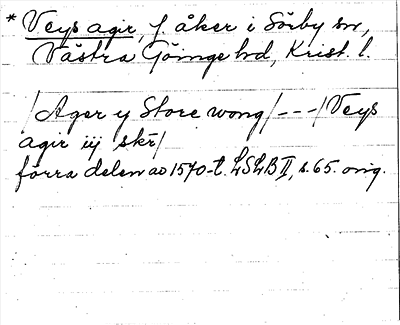 * Veys agir, f. åker i Sörby sn,
Västra Göinge hd, Krist. l.
/Ager y Store wong/---/Veys
agir iij skr/
förra delen av 1570-t. LSLB II, s. 65. orig.